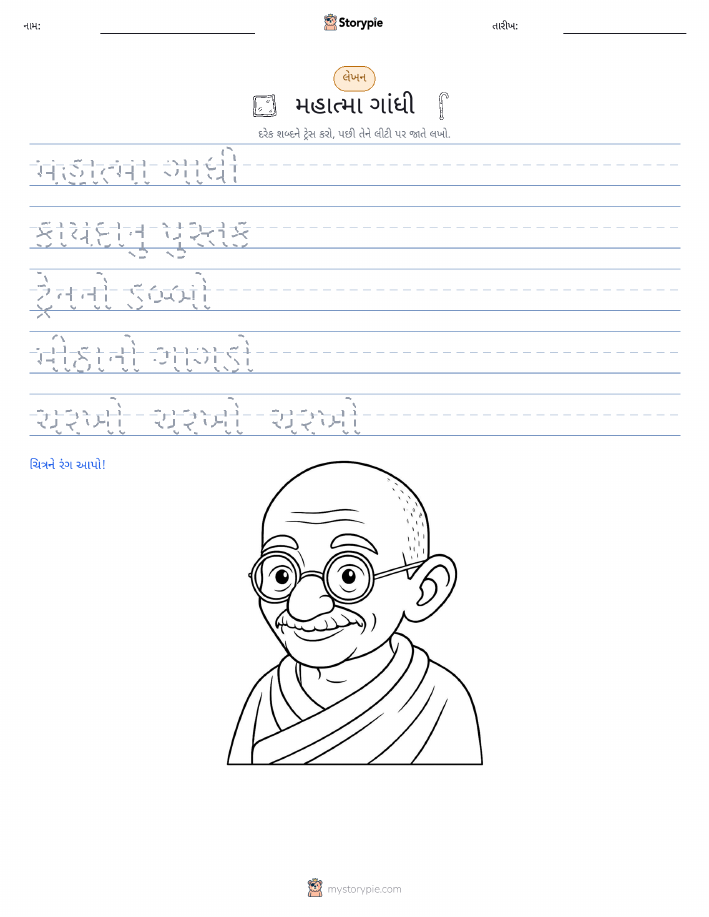 નામ:
Storypie
તારીખ:
લેખન
મહાત્મા ગાંધી
દરેક શબ્દને ટ્રેસ કરો, પછી તેને લીટી પર જાતે લખો.
મહાત્મા ગાધી
કાયદાનુ પુસ્તક
ટ્રેનનો ડબ્બો
મીઠાનો ગાગડો
ચરખો ચરખો ચરખો
ચિત્રને રંગ આપો!
mystorypie.com